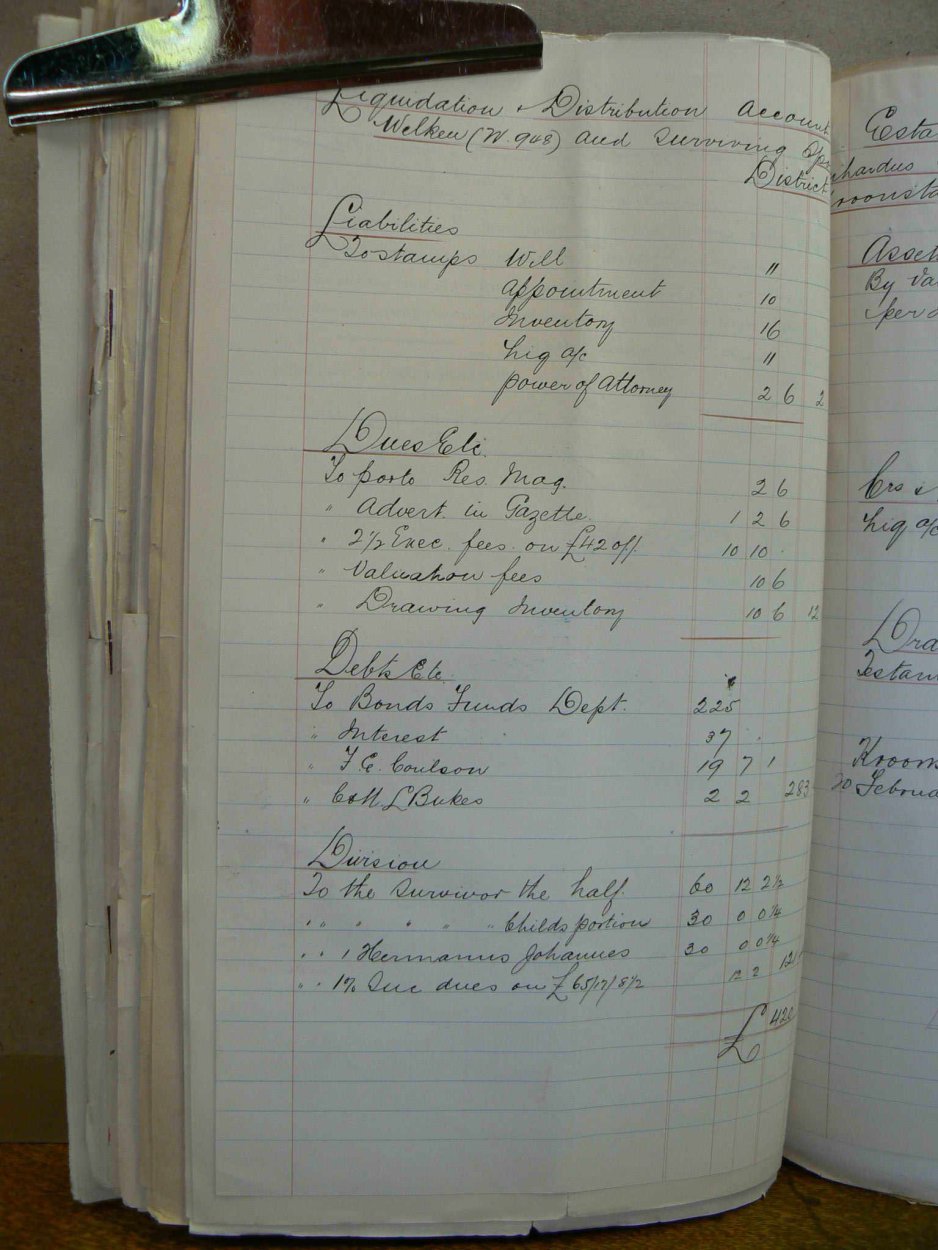 Liquidation & Distribution Account
Welken (W. 948) and Surviving Spo
District
Liabilities
To stamps Will "
appointment 10
Inventory 16
Liq a/c "
power of Attorney 2 6 2
Dues Etc.
To porto Res. Mag. 2 6
" Advert. in Gazette. 1 2 6
" 2½ Exec. fees on £420ff. 10 10
" Valuation fees 10 6
" Drawing Inventory 10 6 12
Debts Etc.
To Bonds Funds Dept. 225
" Interest 37
" T. E. Coulson 19 7 1
" L Bukes 2 2 283
Division
To the Survivor the half. 60 12 2½
" " " " " Childs portion 30 0 0¼
" " Hermanus Johannes 30 0 0¼
" " 1% Suc dues on £65/17/8½ 12 2 121
£ 420
Esta
chardus
roonsta
Asset
By Va
per
Crs &
Liq a/c
Dra
Testam
Kroons
20 Februa